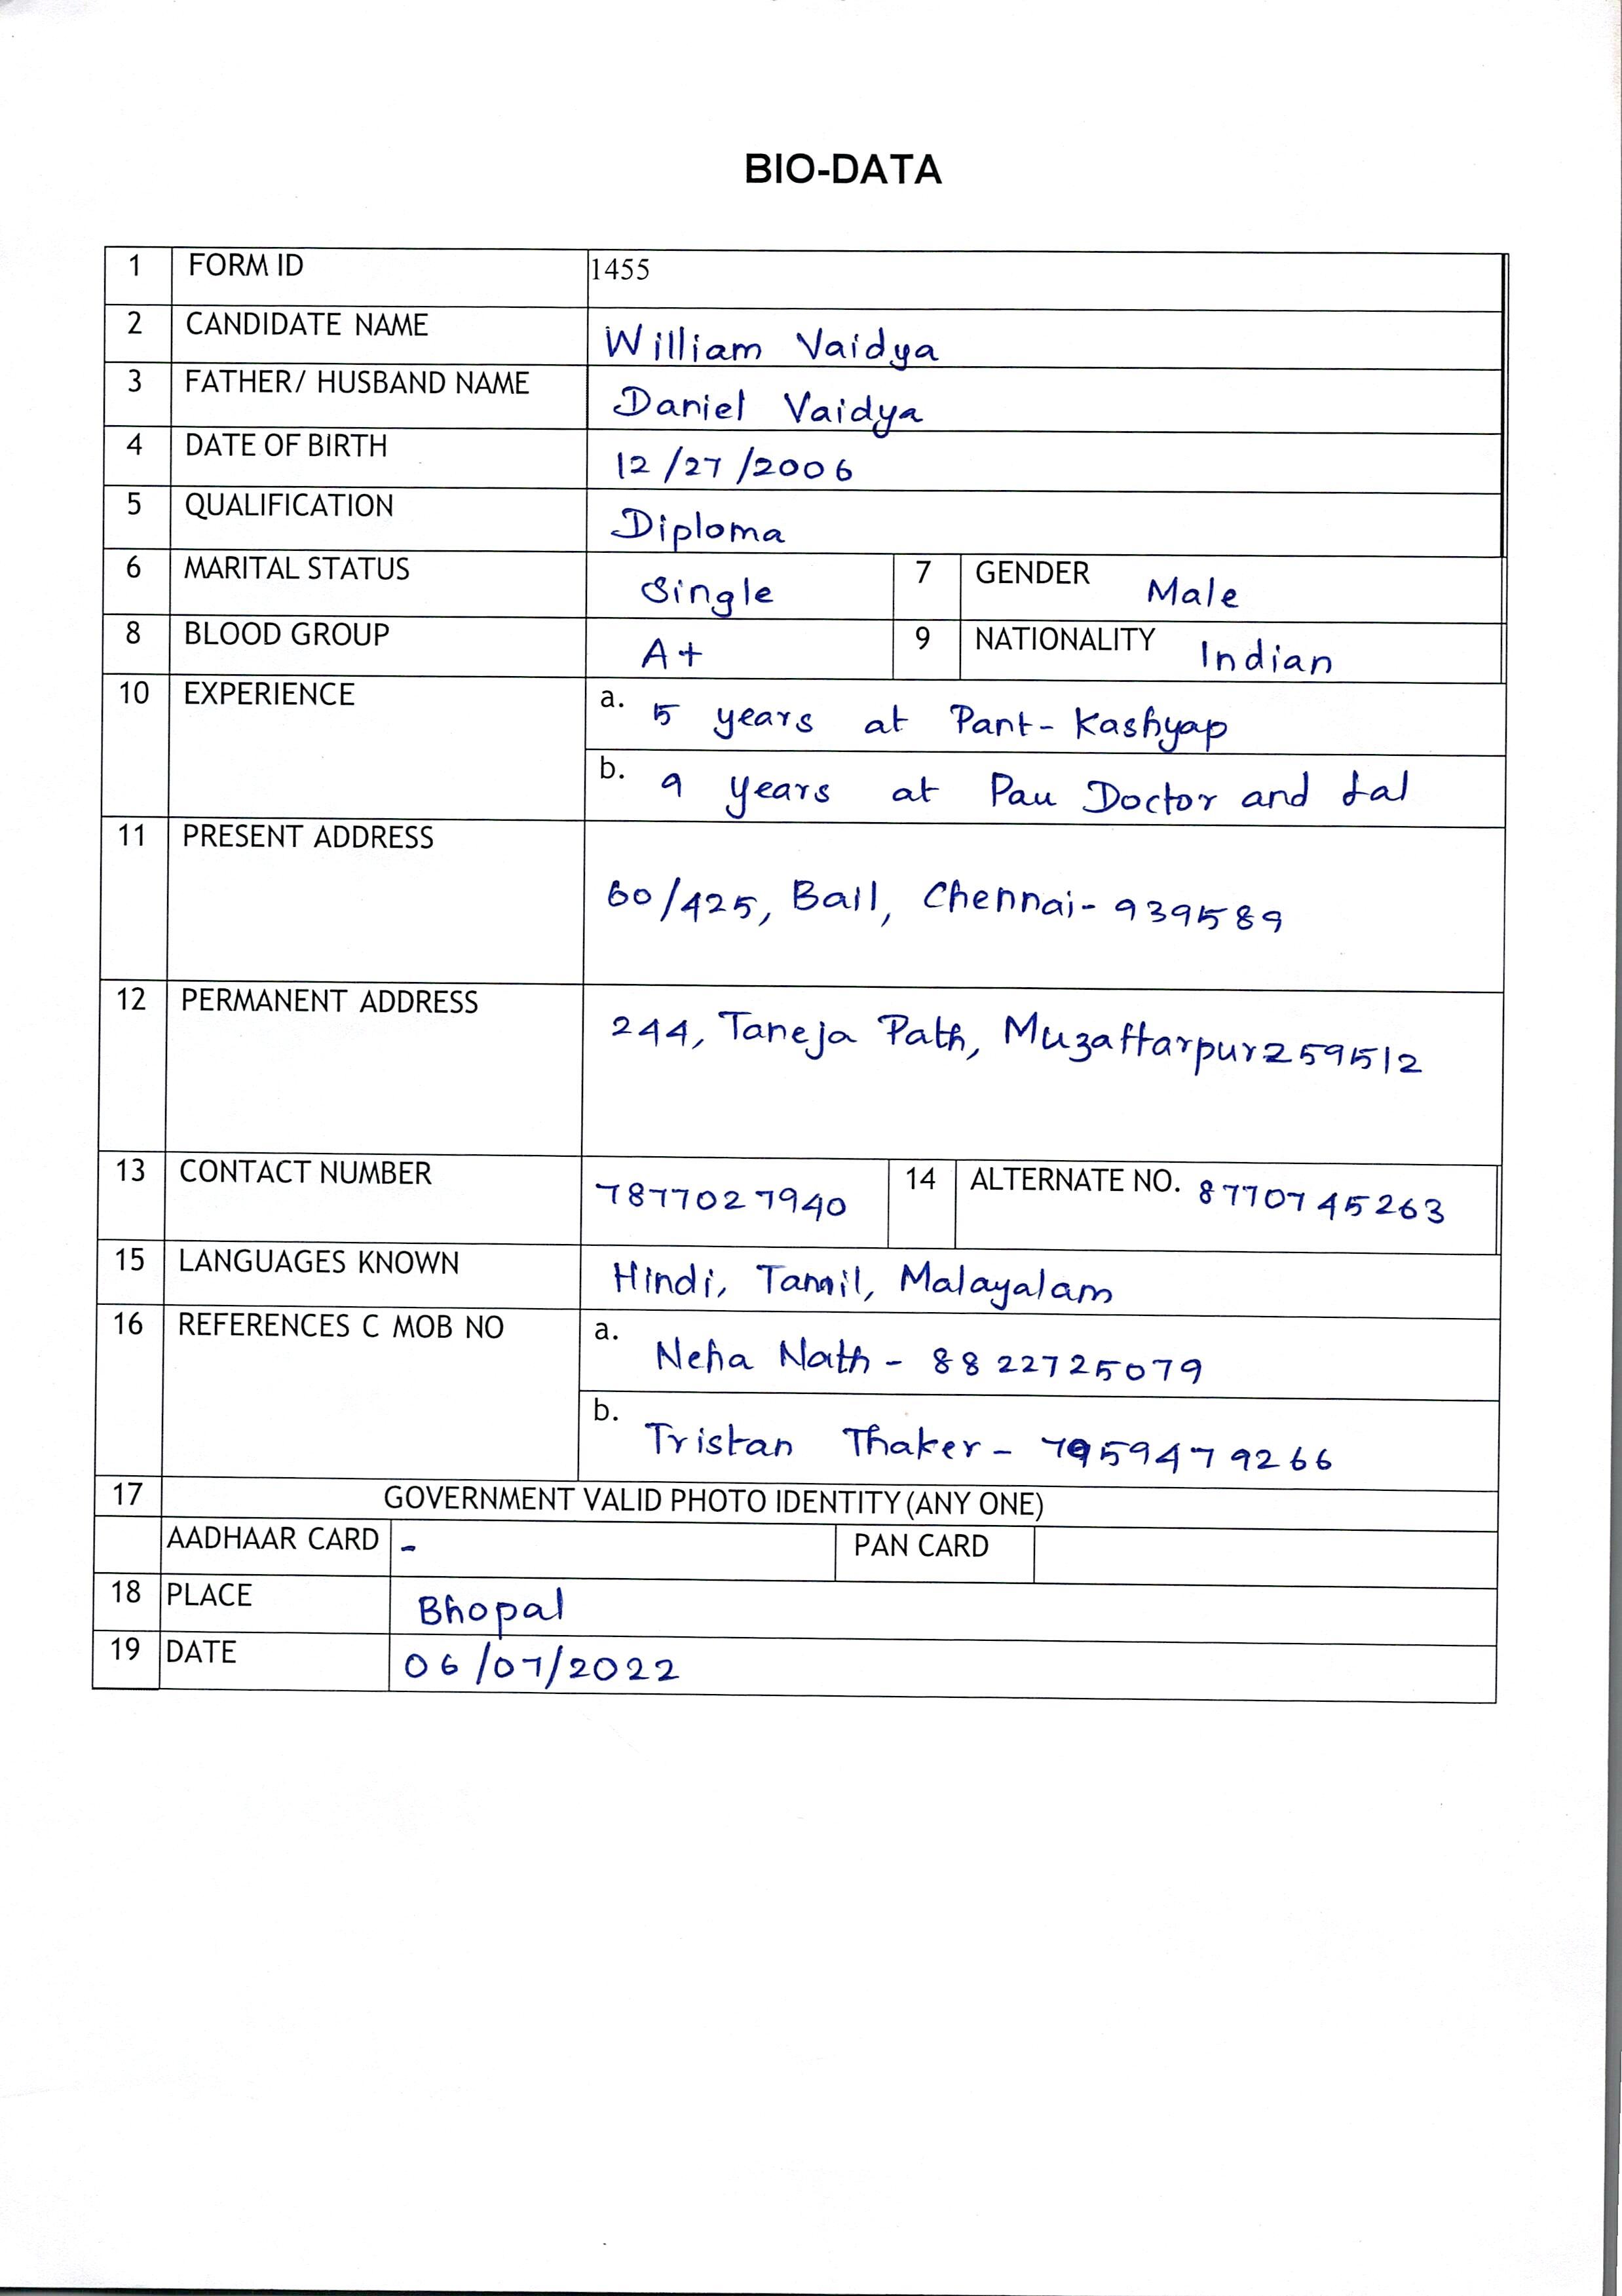 BIO-DATA
1 FORM ID 1455
2 CANDIDATE NAME William Vaidya
3 FATHER/ HUSBAND NAME Daniel Vaidya
4 DATE OF BIRTH 12/27/2006
5 QUALIFICATION Diploma
6 MARITAL STATUS Single 7 GENDER Male
8 BLOOD GROUP A+ 9 NATIONALITY Indian
10 EXPERIENCE a. 5 years at Pant-Kashyap
b. 9 years at Pau Doctor and Lal
11 PRESENT ADDRESS 60/425, Bail, Chennai-939589
12 PERMANENT ADDRESS 244, Taneja Path, Muzaffarpur259512
13 CONTACT NUMBER 7877027940 14 ALTERNATE NO. 8770745263
15 LANGUAGES KNOWN Hindi, Tamil, Malayalam
16 REFERENCES C MOB NO a. Neha Nath - 8822725079
b. Tristan Thaker - 7959479266
17 GOVERNMENT VALID PHOTO IDENTITY (ANY ONE)
AADHAAR CARD - PAN CARD
18 PLACE Bhopal
19 DATE 06/07/2022